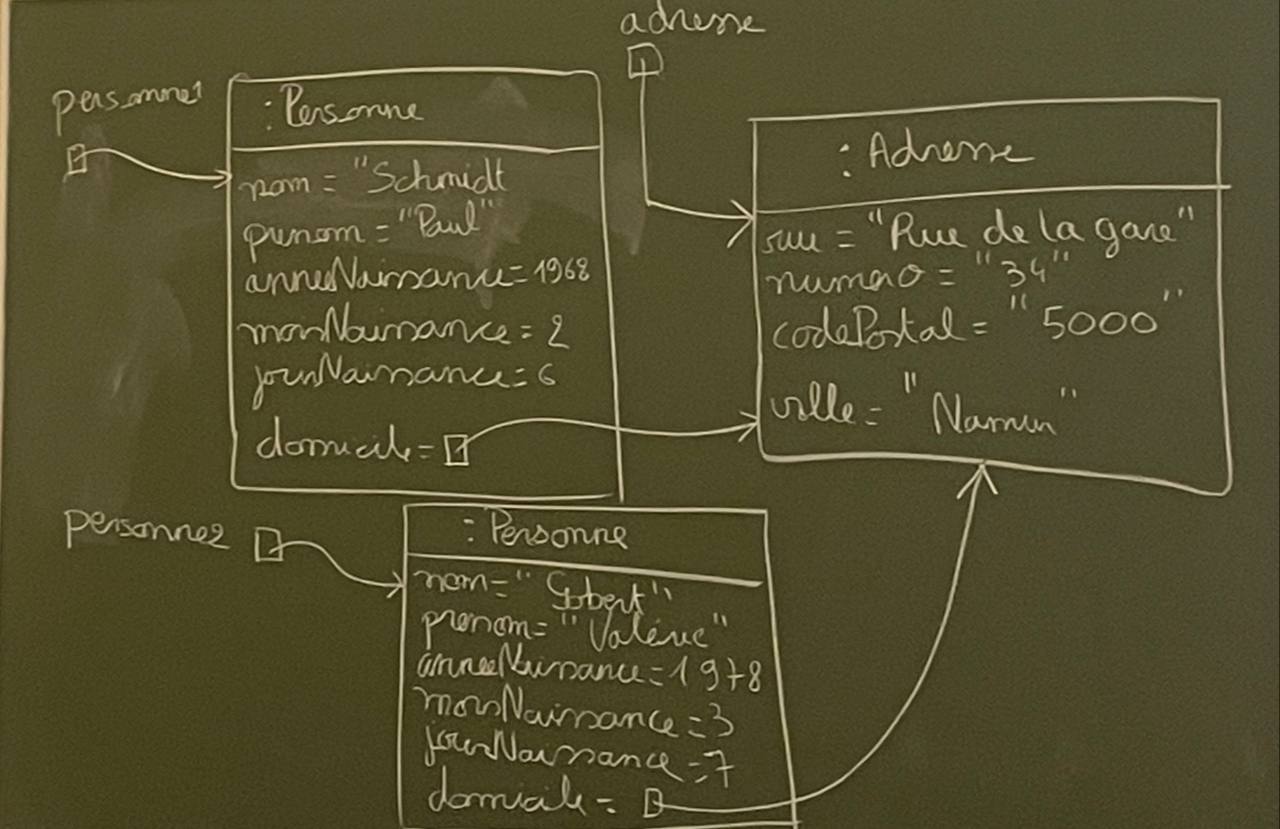 adresse
personne1
: Personne
nom = "Schmidt
prenom = "Paul"
anneeNaissance = 1968
moisNaissance = 2
jourNaissance = 6
domicile =
: Adresse
rue = "Rue de la gare"
numero = "34"
codePostal = "5000"
ville = "Namur"
personne2
: Personne
nom = "Gobert"
prenom = "Valérie"
anneeNaissance = 1978
moisNaissance = 3
jourNaissance = 7
domicile =